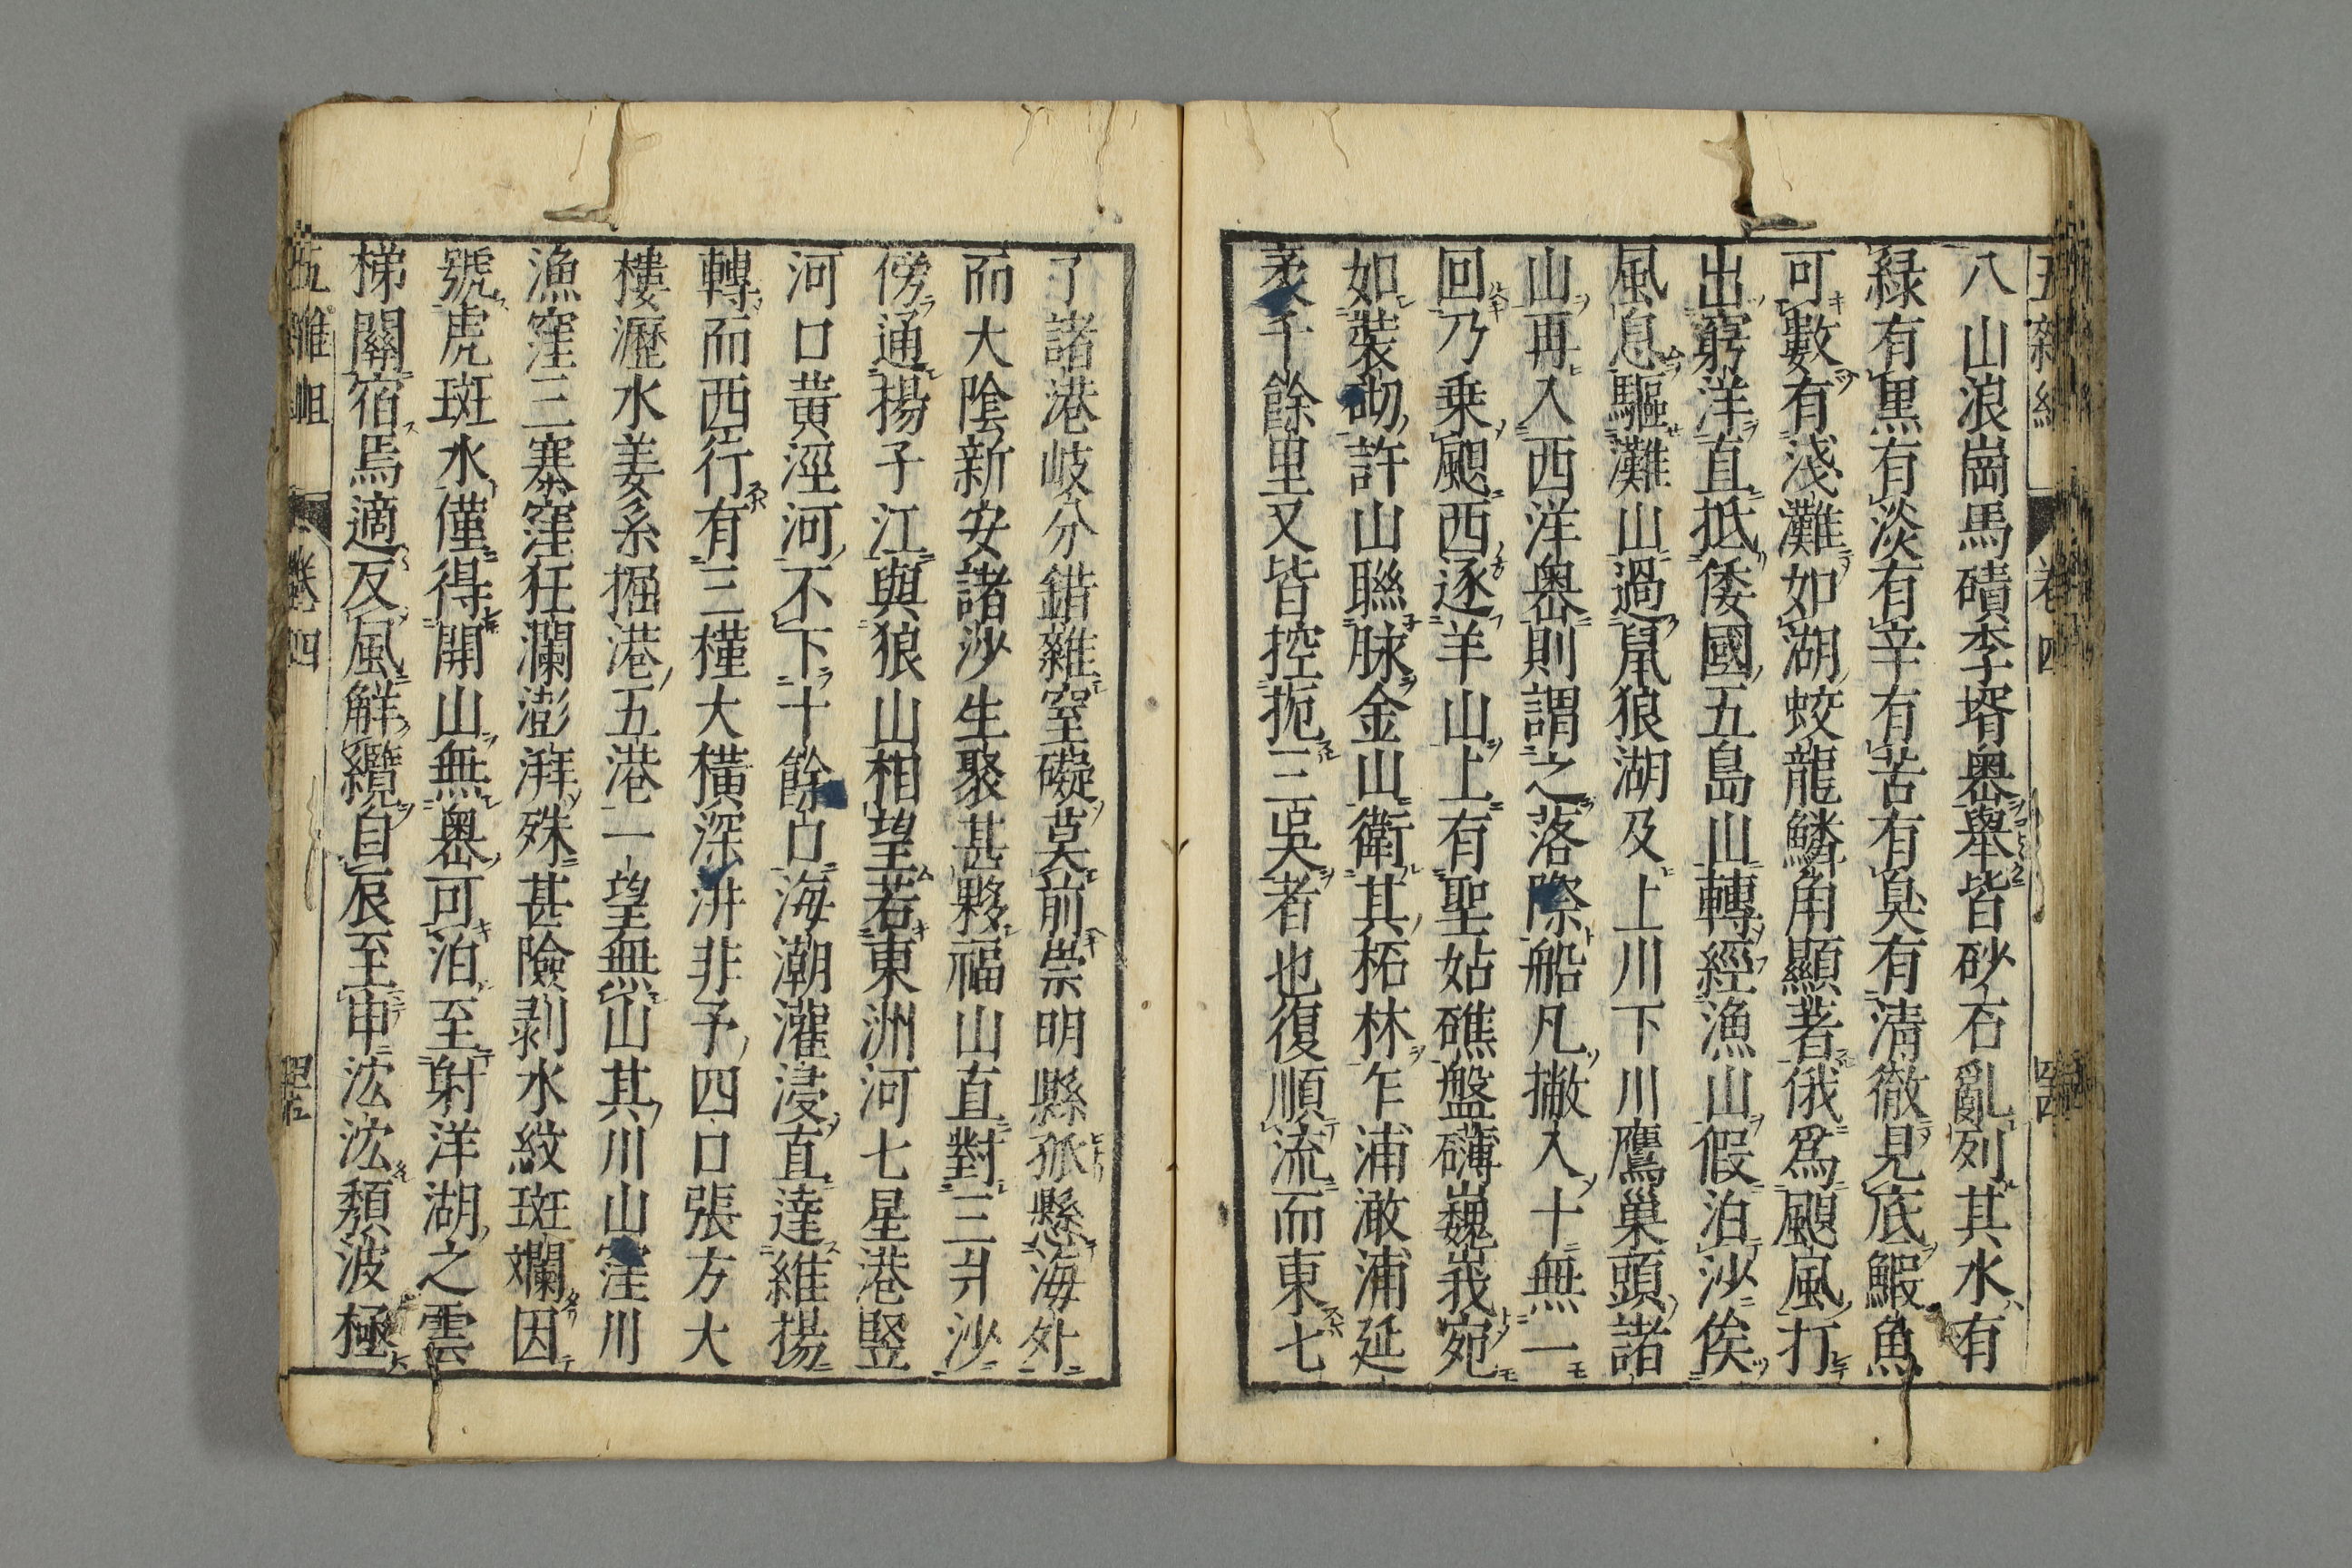 八山浪崗馬磧李壻嶴舉皆砂石亂列其水有
緑有黒有淡有辛有苦有臭有清徹見底鰕魚
可數有淺灘如湖蛟龍鱗角顯著俄爲颶風打
出窮洋直抵倭國五島山轉經漁山假泊沙俟
風息驅灘山過鼠狼湖及上川下川鷹巢頭諸
山再入西洋嶴則謂之落際船凡撇入十無一
回乃乗颶西逐羊山上有聖姑礁盤礴巍峩宛
如裝砌許山聯脉金山衛其柘林乍浦澉浦延
袤千餘里又皆控扼三吳者也復順流而東七
了諸港岐分錯雜窒礙莫前崇明縣孤懸海外
而大陰新安諸沙生聚甚夥福山直對三爿沙
傍通揚子江與狼山相望若東洲河七星港竪
河口黄涇河不下十餘白海潮灌浸直達維揚
轉而西行有三槿大橫深汫非予四口張方大
樓瀝水姜系掘港五港一望無山其川山窪川
漁窪三寨窪狂瀾澎湃殊甚險剥水紋斑斕因
號虎斑水僅得開山無嶴可泊至射洋湖之雲
梯關宿焉適反風解纜自辰至申浤浤頽波極
五雜組 卷四 四十四
五雜俎 卷四 四十五